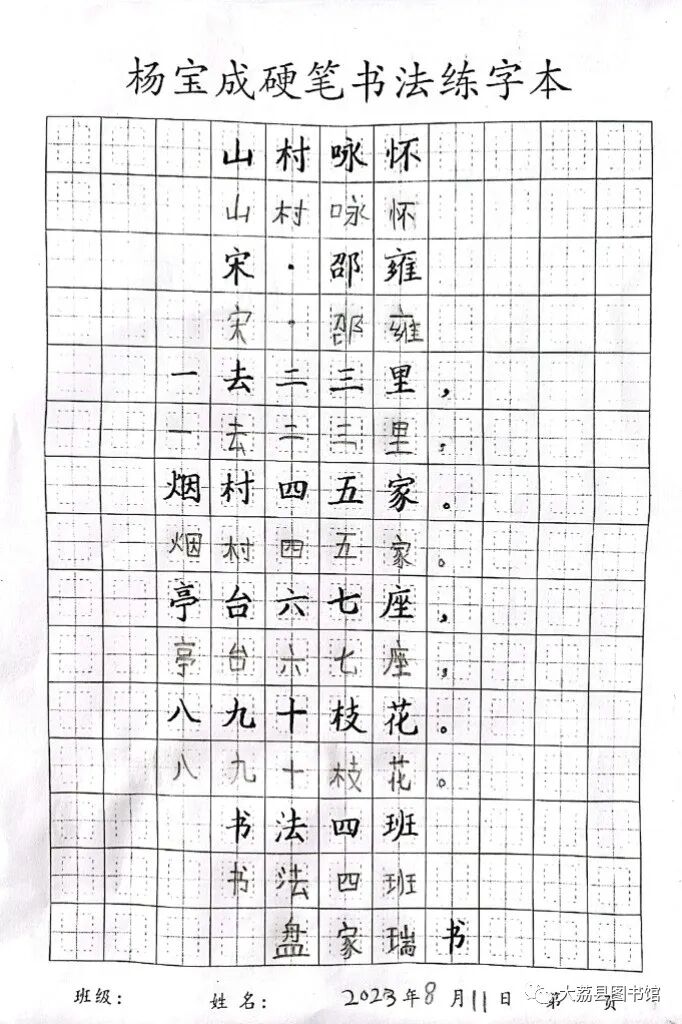 杨宝成硬笔书法练字本
山村咏怀
山村咏怀
宋·邵雍
宋·邵雍
一去二三里，
一去二三里，
烟村四五家。
烟村四五家。
亭台六七座，
亭台六七座，
八九十枝花。
八九十枝花。
书法四班
书法四班
盘家瑞书
班级： 姓名： 2023年8月11日 第 页
大荔县图书馆